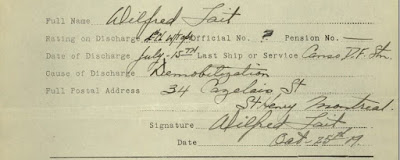 Full Name Wilfred Tait
Rating on Discharge Official No. ? Pension No. —
Date of Discharge July-15TH Last Ship or Service Canso D.F. Stn.
Cause of Discharge Demobilization
Full Postal Address 34 Cazelais St
St. Henry Montreal
Signature Wilfred Tait
Date Oct-28th 19.